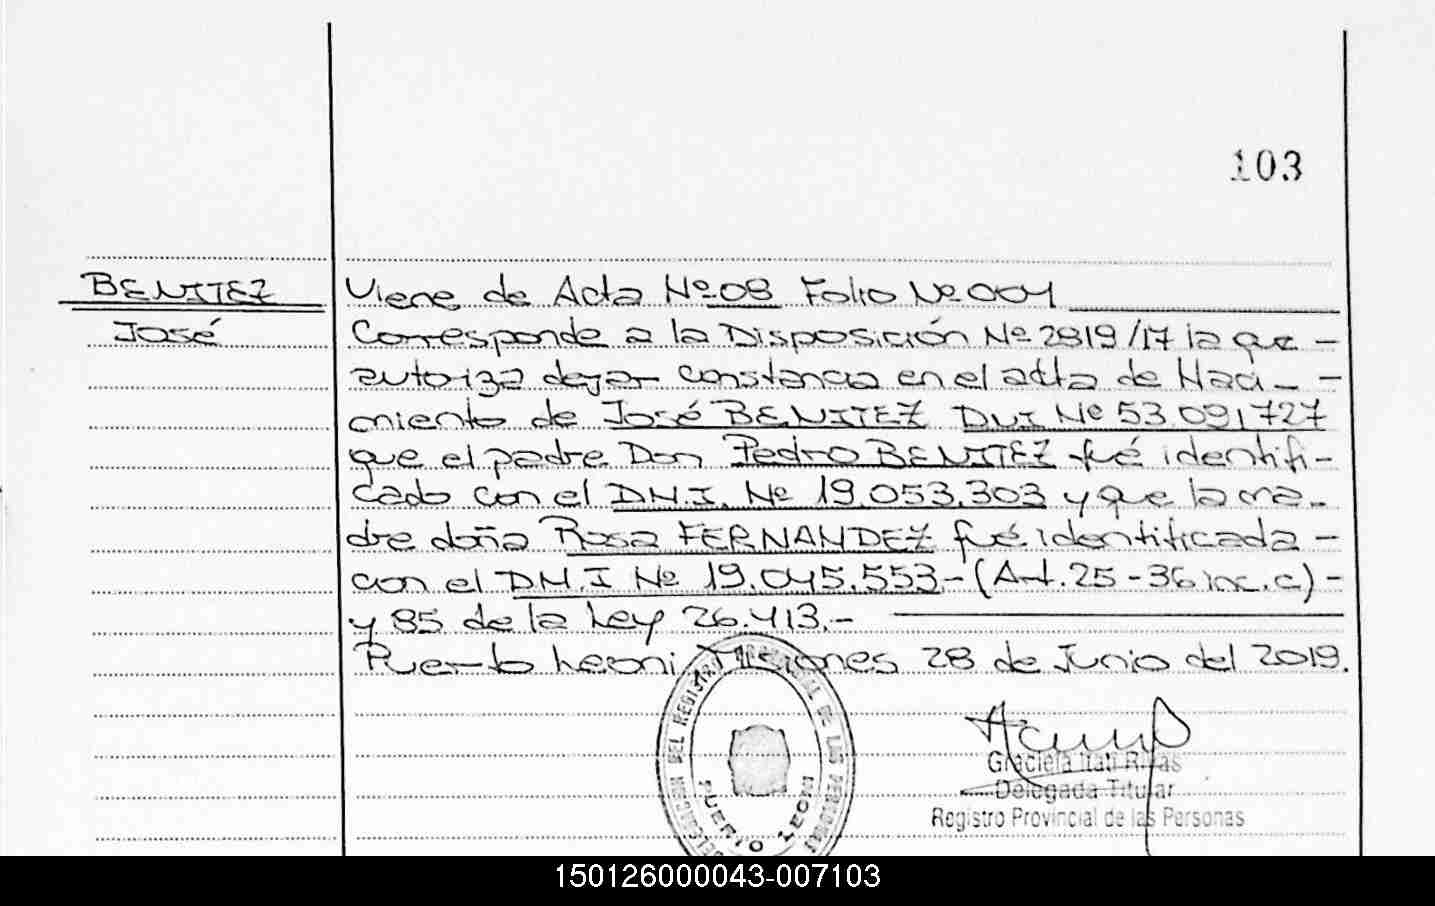 103
BENITEZ
José
Viene de Acta Nº 08 Folio Nº 004
Corresponde a la Disposición Nº 2819/17 la que -
autoriza dejar constancia en el acta de Naci- -
miento de José BENITEZ DNI Nº 53.091727
que el padre Don Pedro BENITEZ fué identifi-
cado con el D.N.I. Nº 19.053.303 y que la ma-
dre doña Rosa FERNANDEZ fué identificada -
con el D.N.I Nº 19.045.553.- (Art. 25 - 36 inc. c) -
y 85 de la Ley 26.413.-
Puerto Leoni Misiones 28 de Junio del 2019.
DEL REGISTRO DE LAS PERSONAS
PUERTO LEONI
Graciela Itatí Rivas
Delegada Titular
Registro Provincial de las Personas
150126000043-007103